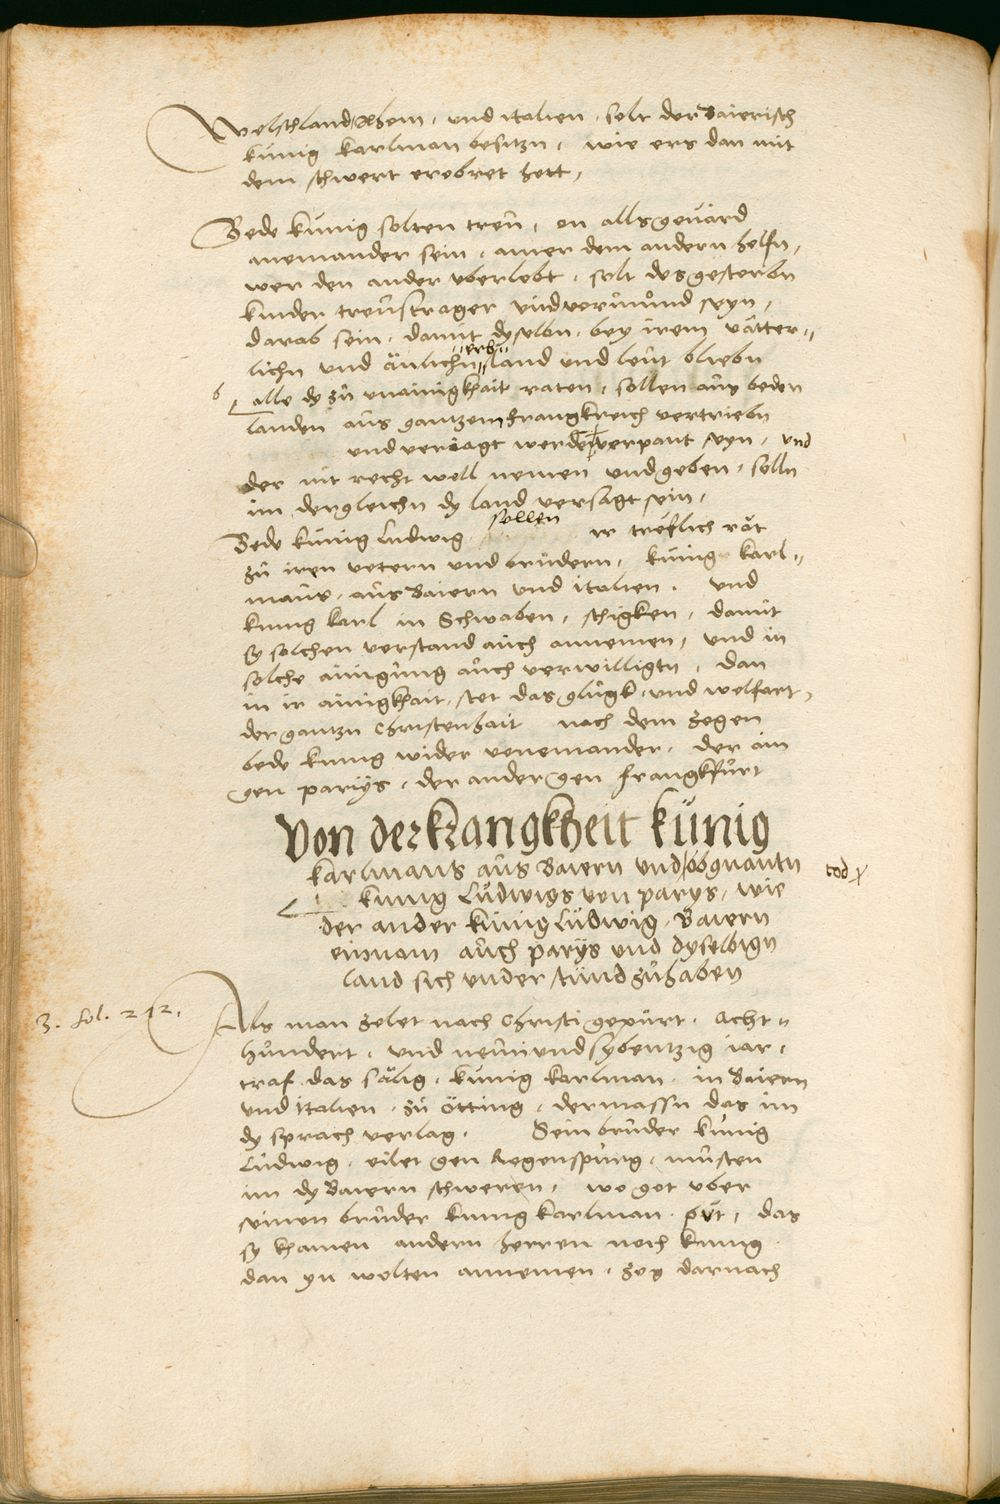 Welschland, Rhom, und italien, solt der Baierisch
künig karlman besitzn, wie ers dan mit
dem schwert erobret hett,
Bede künig solten treu, on alls gevärd
aneinander sein, ainer dem andern helfn,
wer den ander uberlebt, solt des gestorbn
kinder treustrager und vormund seyn,
darob sein, damit dyselbn, bey irem vätter„
lichn und änlichn erb„ land und leut bliebn
b
alle dy zu unainigkhait raten, sollen aus beden
landen aus gantzem frangkreich vertriebn
und veriagt werden, verpant seyn, und
der nit recht well nemen und geben, solln
im dergleichn dy land versagt sein,
Bede künig Ludwig sollen ir treflich rät
zu iren vetern und brüdern, künig karl„
mans, aus Baiern und italien, und
künig karl in Schwaben, schigken, damit
sy solchen verstand auch annemen, und in
solche ainigung auch verwilligtn, dan
in ir ainigkhait, stet das glügk, und wolfart,
der gantzn Christenhait nach dem zogen
bede künig wider voneinander, der ain
gen pariys, der ander gen frangkfurt
Von der krangkheit künig
karlmans aus Baiern und abgnantn tod
künig Ludwigs von parys, wie
der ander künig Ludwig, Baiern
einnam auch parys und dyselbign
land sich understund zuhaben
3. fol. 212.
Als man zelet nach Christi gepurt, Acht„
hundert, und neunundsybentzig iar,
traf das sälig, künig karlman, in Baiern
und italien, zu ötting, dermassn das im
dy sprach verlag, Sein bruder künig
Ludwig, eilet gen Regenspurg, musten
im dy Baiern schweren, wo got uber
seinen bruder künig karlman, püt, das
sy khainen andern herren noch künig
dan yn wolten annemen, zog darnach